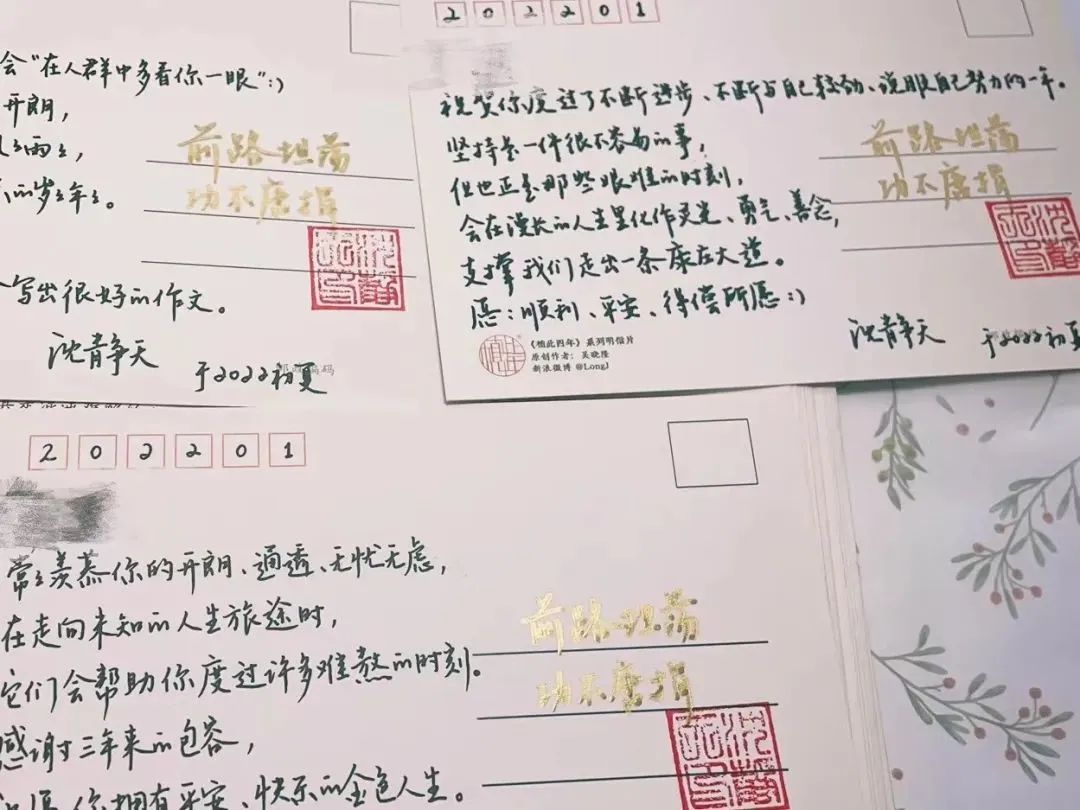 会“在人群中多看你一眼”:)
开朗，
雨々，
的岁々年々。
写出很好的作文。
沈静天
于2022初夏
前路坦荡
功不唐捐
202201
祝贺你度过了不断进步、不断与自己较劲、说服自己努力的一年。
坚持是一件很不容易的事，
但也正是那些艰难的时刻，
会在漫长的人生里化作灵光、勇气、善念，
支撑我们走出一条康庄大道。
愿：顺利、平安、得偿所愿:)
前路坦荡
功不唐捐
沈静天
于2022初夏
《植此四年》系列明信片
原创作者：吴晓隆
新浪微博 @LongJ
202201
常々羡慕你的开朗、通透、无忧无虑，
在走向未知的人生旅途时，
它们会帮助你度过许多难熬的时刻。
感谢三年来的包容，
愿你拥有平安、快乐的金色人生。
前路坦荡
功不唐捐